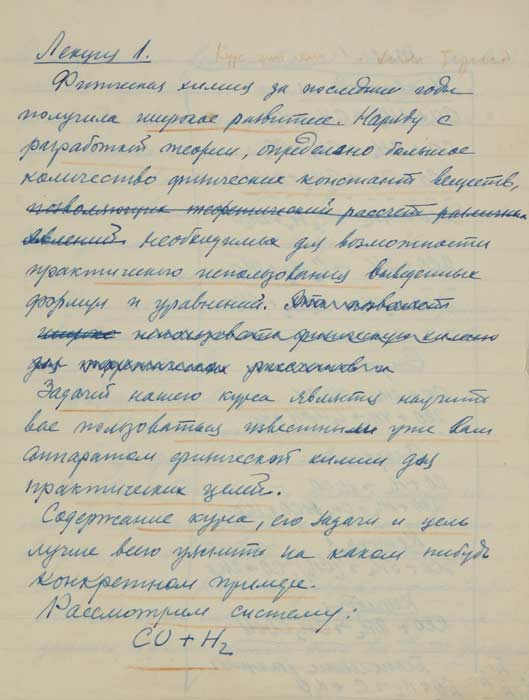 Лекция 1.
Физическая химия за последние годы
получила широкое развитие. Наряду с
разработкой теории, определено большое
количество физических констант веществ,
позволяющих теоретический рассчет различных
явлений необходимых для возможности
практического использования выведенных
формул и уравнений. Это позволяет
широко использовать физическую химию
для теоретических рассчетов
Задачей нашего курса является научить
вас пользоваться известными уже Вам
аппаратом физической химии для
практических целей.
Содержание курса, его задачи и цель
лучше всего уяснить на каком нибудь
конкретном примере.
Рассмотрим систему:
CO + H₂